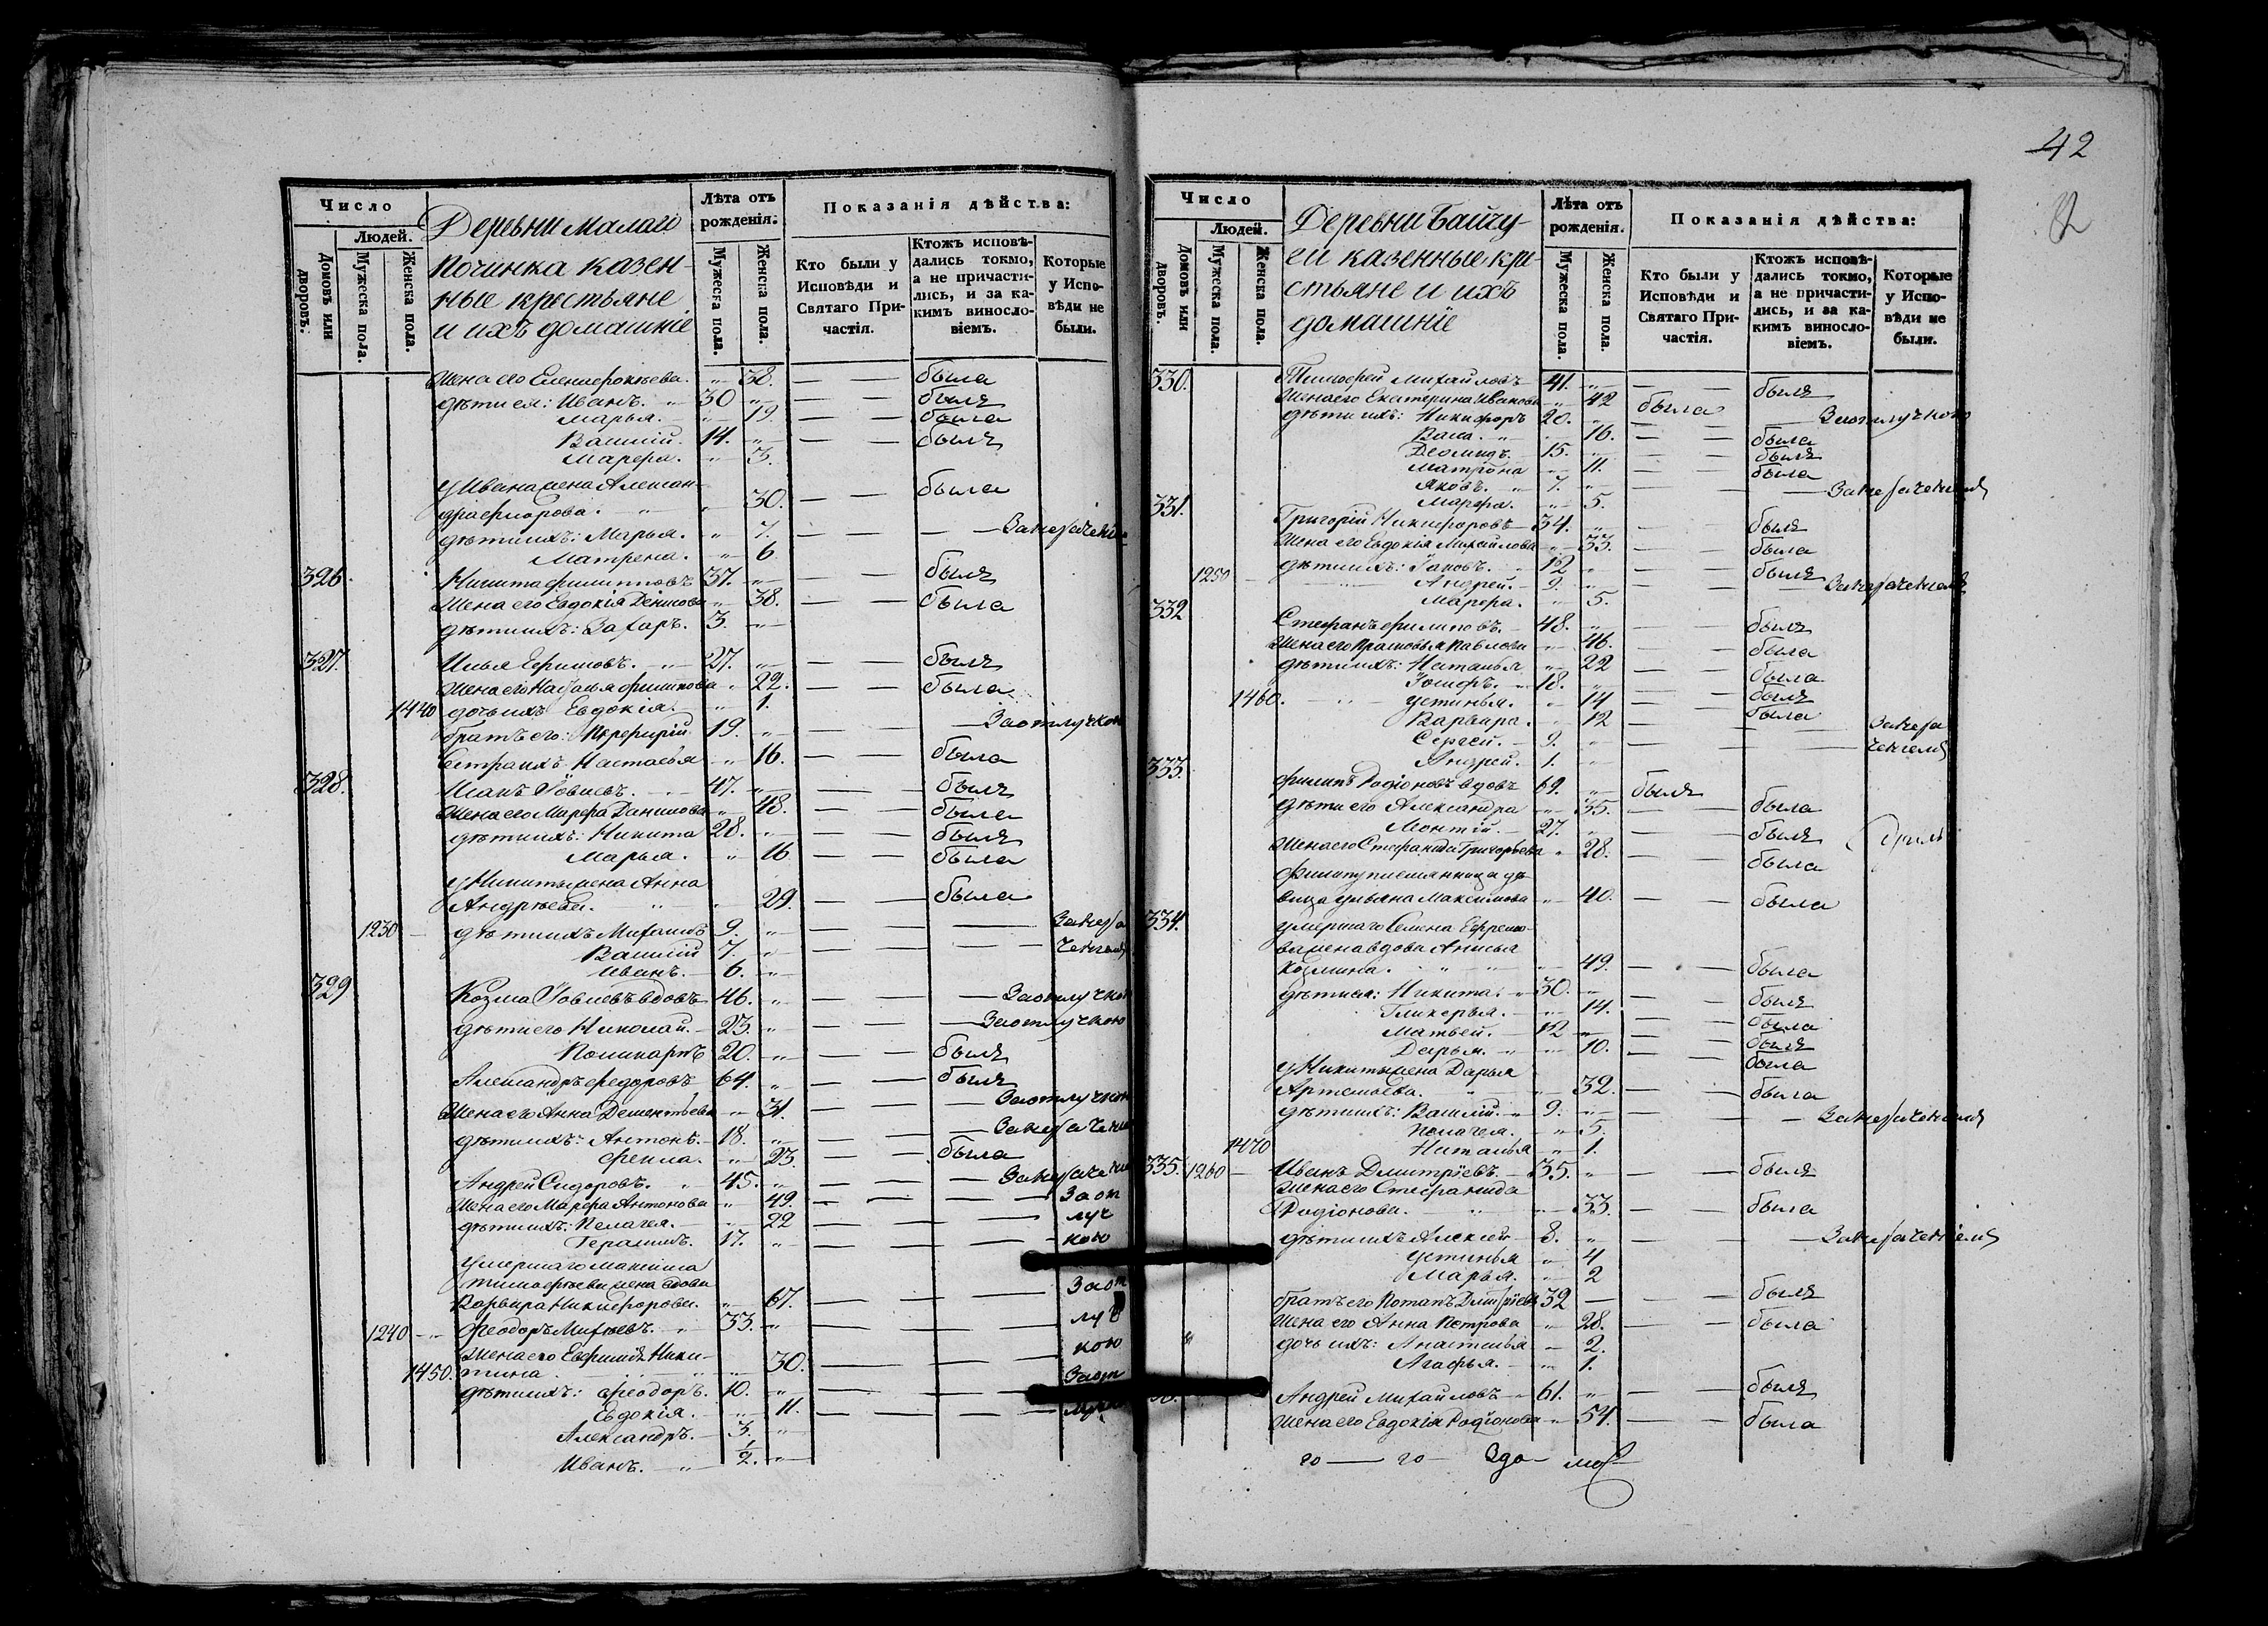 Число
Людей.
Домовъ или дворовъ.
Мужеска пола.
Женска пола.
Деревни Малаго
Починка казен-
ные крестьяне
и ихъ домашніе
Лѣта отъ рожденія.
Мужеска пола.
Женска пола.
Показанія дѣйства:
Кто были у Исповѣди и Святаго При-частія.
Ктожъ исповѣ-дались токмо, а не причасти-лись, и за ка-кимъ винсло-віемъ.
Которые у Испо-вѣди не были.
Жена его 38. — — была
дѣти ея: Иванъ. 30 — — былъ
Марья. 19. — — была
Василій. 14. — — былъ
Марфа. 3.
У Ивана жена Алексан-
дра 30. — — была
дѣти ихъ: Марья. 7. — —
Матрена. 6.
326. Никита Филипповъ 37. — — былъ
Жена его Евдокія Денисова 38. — — была
дѣти ихъ: Захаръ. 3.
327. Илья Ефимовъ. 27. — — былъ
Жена его Наталья Филипова 22. — — была
1440 дочь ихъ Евдокія. 1.
братъ его: Порфирій 19. — — За отлучкою
Сестра ихъ Настасья 16. — — была
328. Исакъ Іовлевъ. 47. — — былъ
Жена его Марфа Данилова 48. — — была
дѣти ихъ: Никита 28. — — былъ
Марья. 16 — — была
У Никиты жена Анна
Андрѣева. 29. — — была
1230 дѣти ихъ Михаилъ 9. — —
Василій 7. — —
Иванъ. 6.
329 Козма Іовлевъ вдовъ 46. — — За отлучкою
дѣти его Николай. 23. — — За отлучкою
Поликарпъ 20. — — былъ
Александръ Федоровъ 64. — — былъ
Жена его Анна Дементьева 31. — — За отлучкою
дѣти ихъ: Антонъ. 18. — —
Фекла. 23. — — была
Андрей Сидоровъ. 45. — —
Жена его Марфа Антонова 49. — — За от
дѣти ихъ: Пелагея. 22 — — луч
Герасимъ. 17. — — кою
Умершаго Максима
Тимофѣева жена вдова За от
Варвара Никифорова. 67. — —
1240 Феодоръ Михѣевъ. 33. — — луч
Жена его Евфимія Ники- кою
1450. тина 30. — — За от
дѣти ихъ: Феодоръ. 10. — —
Евдокія. 11. — —
Александръ. 3.
Иванъ. 1/2.
42
Число
Людей.
Домовъ или дворовъ.
Мужеска пола.
Женска пола.
Деревни Байчу-
ги казенные кре-
стьяне и ихъ
домашніе
Лѣта отъ рожденія.
Мужеска пола.
Женска пола.
Показанія дѣйства:
Кто были у Исповѣди и Святаго При-частія.
Ктожъ исповѣ-дались токмо, а не причасти-лись, и за ка-кимъ винсло-віемъ.
Которые у Испо-вѣди не были.
330. Тимофей Михайловъ 41. — — былъ
Жена его Екатерина Иванова 42 была
дѣти ихъ: Никифоръ 20. За отлучкою
Васа. 16. — — была
Деомидъ. 15. — — былъ
Матрона 11. — — была
Яковъ. 7. — —
Марфа. 5.
331. Григорій Никифоровъ 34. — — былъ
Жена его Евдокія Михайлова 33. — — была
дѣти ихъ: Іаковъ. 12 — — былъ
1250 Андрей. 9. — —
Марфа. 5.
332 Стефанъ Филиповъ. 48. — — былъ
Жена его Прасковья Павлова 46. — — была
дѣти ихъ: Наталья 22 — — была
Іосифъ. 18. — — былъ
1460. Устинья. 14 — — была
Варвара. 12
Сергей. 9. — —
Андрей. 1.
333. Филипъ Родіоновъ вдовъ 69. былъ
дѣти его Александра 35. — — была
27. — — былъ
Жена его Стефанида Григорьева 28. — — была
Филипу племянница дѣ-
вица Ульяна Максимова 40. — — была
334. Умершаго Семена Ефремо-
ва жена вдова Анисья
Козмина. 49. — — была
дѣти ея: Никита. 30. — — былъ
Гликерья. 14. — — была
Матвей. 12 — — былъ
Дарья. 10. — — была
У Никиты жена Дарья
Артемьева. 32. — — была
дѣти ихъ: Василій. 9. — —
Пелагея. 5.
1470 Наталья 1.
335. 1260 Иванъ Дмитріевъ. 35. — — былъ
Жена его Стефанида
Родіонова. 33. — — была
дѣти ихъ Алексѣй 8. — —
Устинья 4
Марья. 2
братъ его Потапъ Дмитріевъ 32 — — былъ
Жена его Анна Петрова 28. — — была
дочь ихъ: Анастасья 2.
Агафья. 1.
Андрей Михайловъ 61. — — былъ
Жена его Евдокія Родіонова 54. — — была